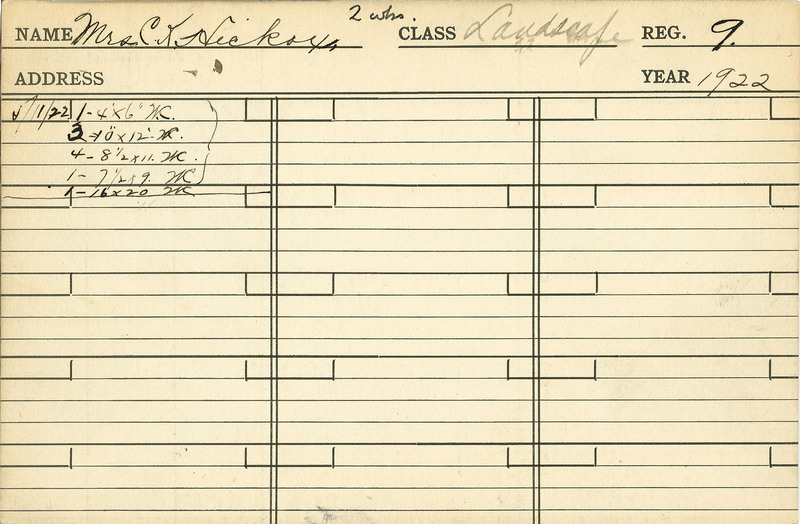 2 wks.
NAME Mrs C. K. Hickox CLASS Landscape REG. 9.
ADDRESS YEAR 1922
1/22 1 - 4 x 6" W.C.
3 - 10" x 12" W.C.
4 - 8 1/2 x 11. W.C.
1 - 7 1/2 x 9. W.C.
1 - 16 x 20 W.C.